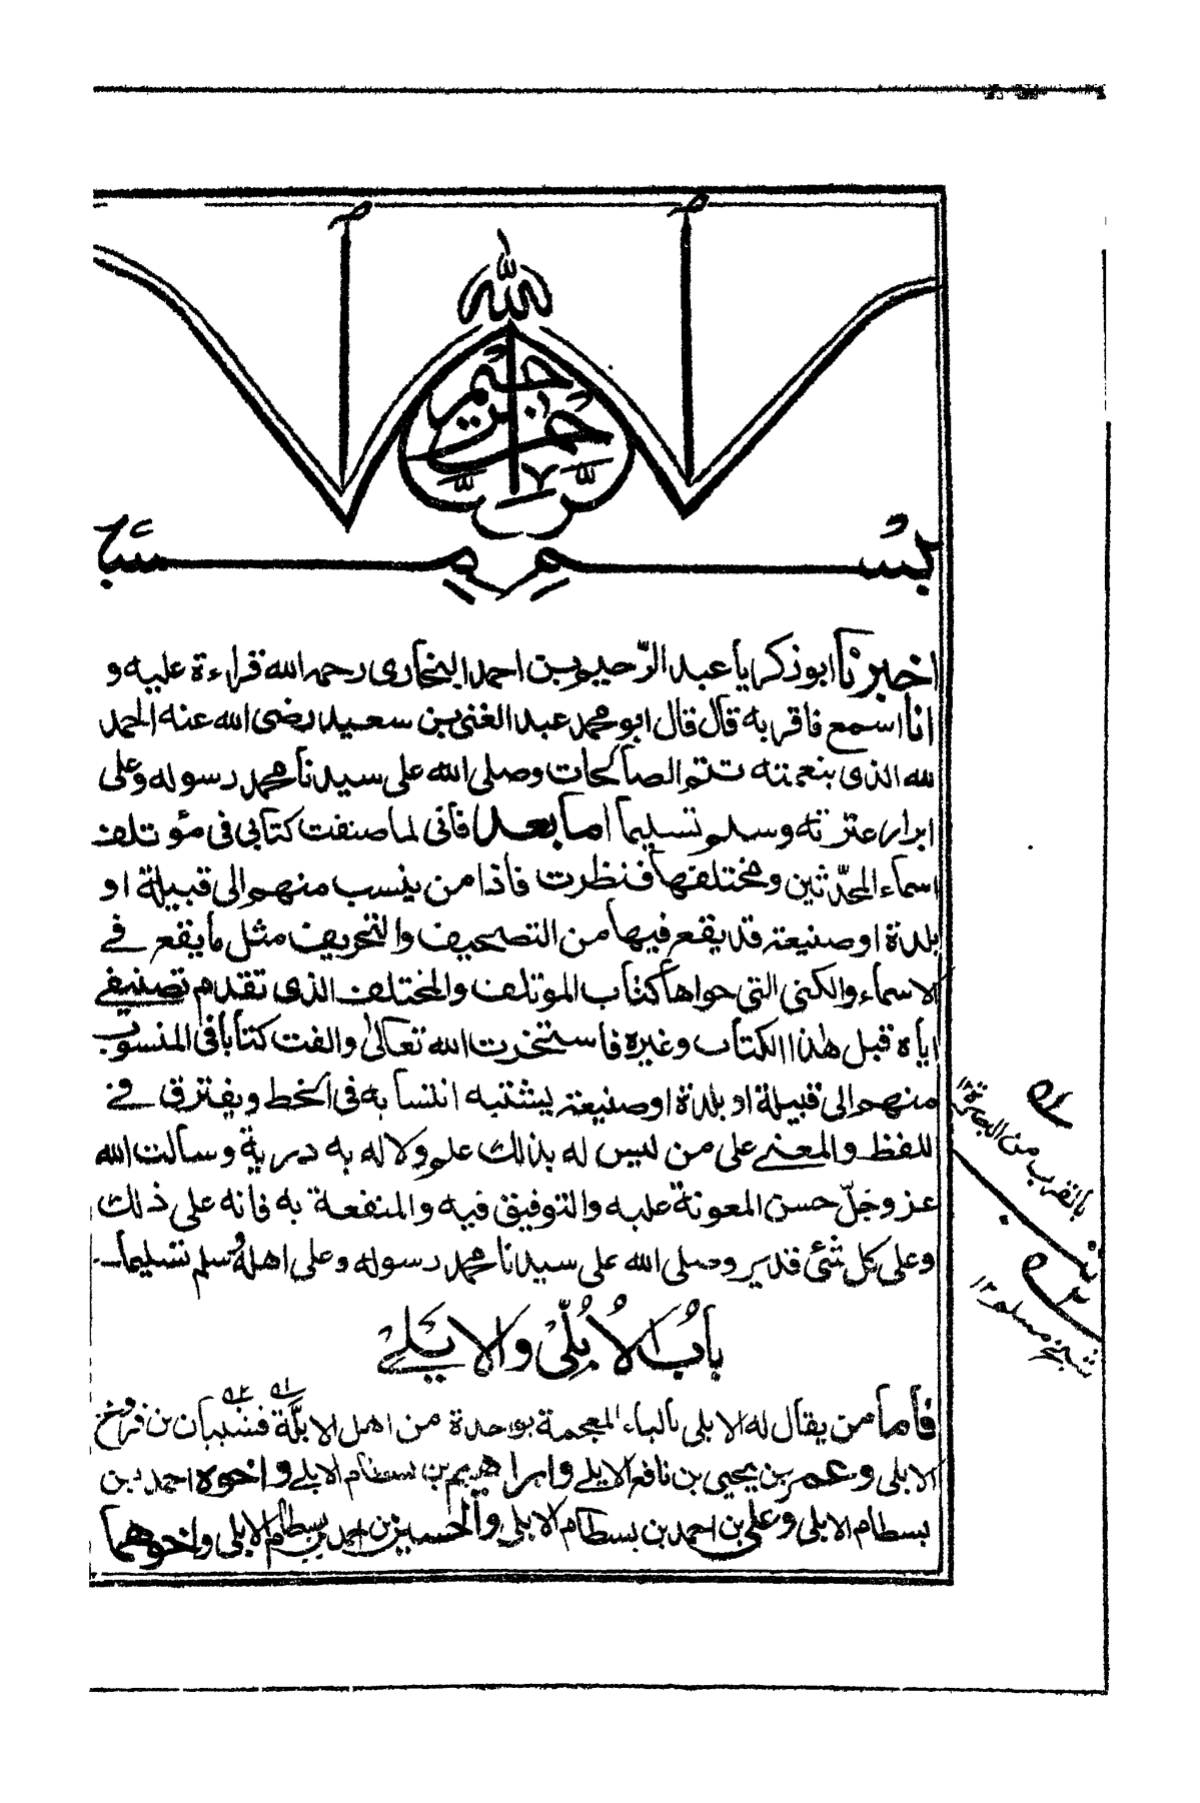 بسم الله الرحمن الرحيم
اخبرنا ابو زكريا عبد الرّحيم بن احمد البخاري رحمه الله قراءة عليه و
انا اسمع فاقر به قال قال ابو محمد عبد الغني بن سعيد رضى الله عنه الحمد
لله الذى بنعمته تتم الصالحات وصلى الله على سيدنا محمد رسوله وعلى
ابرار عترته وسلم تسليما اما بعد فانى لما صنفت كتابى فى مؤتلف
اسماء المحدّثين ومختلفها فنظرت فاذا من ينسب منهم الى قبيلة او
بلدة او صنيعة قد يقع فيها من التصحيف والتحريف مثل ما يقع في
الاسماء والكنى التى حواها كتاب الموتلف والمختلف الذى تقدم تصنيفي
اياه قبل هذا الكتاب وغيره فاستخرت الله تعالى والفت كتابا فى المنسوب
منهم الى قبيلة او بلدة او صنيعة يشتبه انتسابه فى الخط ويفترق في
اللفظ والمعني على من ليس له بذالك علم ولا له به درية وسالت الله
عز وجلّ حسن المعونة عليه والتوفيق فيه والمنفعة به فانه على ذلك
وعلى كل شئ قدير وصلى الله على سيدنا محمد رسوله وعلى اهله وسلم تسليما
باب الأُبُلِّى والايلي
فأما من يقال له الابلى بالباء المعجمة بواحدة من اهل الابلّة فشيبان بن فروخ
الابلى وعمر بن يحيى بن نافع الابلي وابراهيم بن بسطام الابلي واخوه احمد بن
بسطام الابلى وعلى بن احمد بن بسطام الابلى والحسين بن احمد بن بسطام الابلى واخوهما
بالقرب من البصرة ١٢
شيخ مسلم ١٢